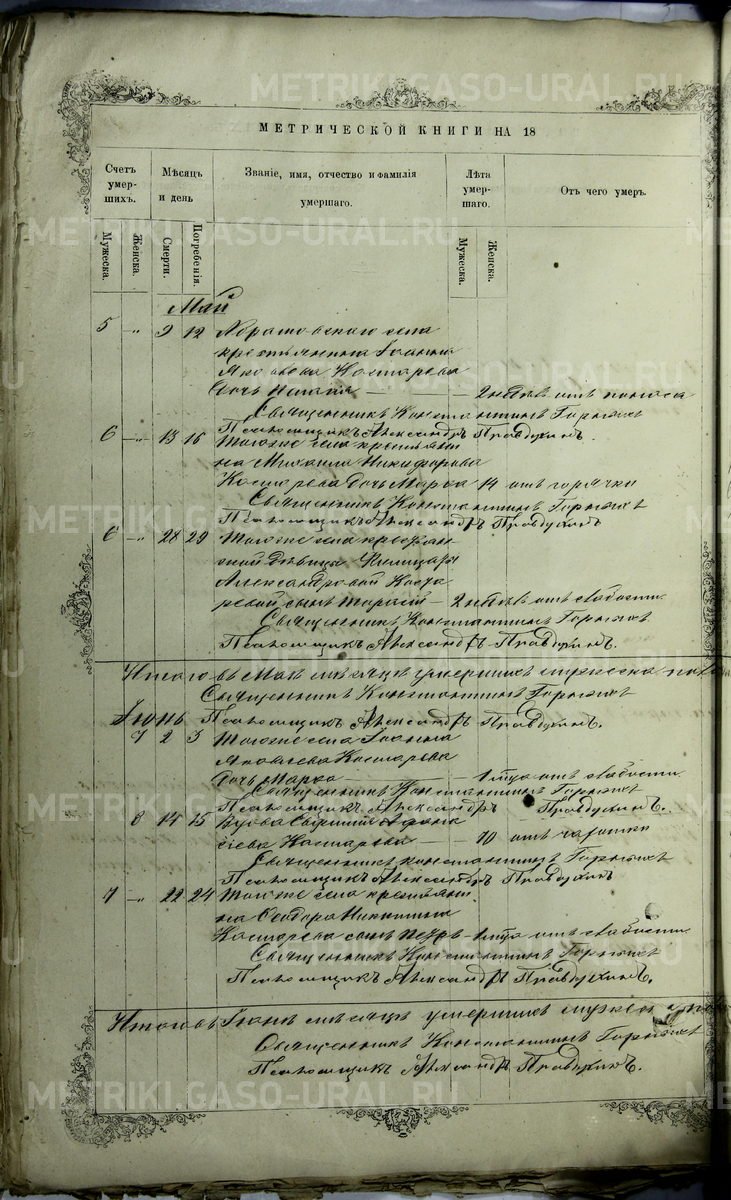 METRIKI.GASO-URAL.RU
МЕТРИЧЕСКОЙ КНИГИ НА 18
Счетъ умер-шихъ.
Мѣсяцъ и день
Званіе, имя, отчество и фамилія умершаго.
Лѣта умер-шаго.
Отъ чего умеръ.
Мужеска.
Женска.
Смерти.
Погребенія.
Мужеска.
Женска.
Май
5 —„ 9 12
села
крестьянина Іоанна
Яковлева Костарева
дочь — 2 отъ поноса
Священникъ Константинъ
Псаломщикъ Александръ Правдухинъ.
6 —„ 13 16 Тогоже села крестьяни
на Михаила Никифорова
Костарева дочь Марѳа 14 отъ горячки
Священникъ Константинъ
Псаломщикъ Александръ Правдухинъ
6 —„ 28 29 Тогоже села крестьян
ской дѣвицы
Александровой Коста
ревой сынъ — 2 отъ слабости.
Священникъ Константинъ
Псаломщикъ Александръ Правдухинъ.
Итого въ Маѣ мѣсяцѣ умершихъ мужеска
Священникъ Константинъ
Псаломщикъ Александръ Правдухинъ.
Іюнь
7 2 3 Тогоже села Іоанна
Яковлева Костарева
дочь — 1 года отъ слабости
Священникъ Константинъ
Псаломщикъ Александръ Правдухинъ.
8 14 15 Вдова Афана
сіева Костарева — 70 отъ чахотки
Священникъ Константинъ
Псаломщикъ Александръ Правдухинъ
7 —„ 22 24 Тогоже села крестьяни
на Ѳеодора Никитина
Костарева сынъ Петръ — 1 года отъ слабости
Священникъ Константинъ
Псаломщикъ Александръ Правдухинъ.
Итого въ Іюнѣ мѣсяцѣ умершихъ
Священникъ Константинъ
Псаломщикъ Александръ Правдухинъ.